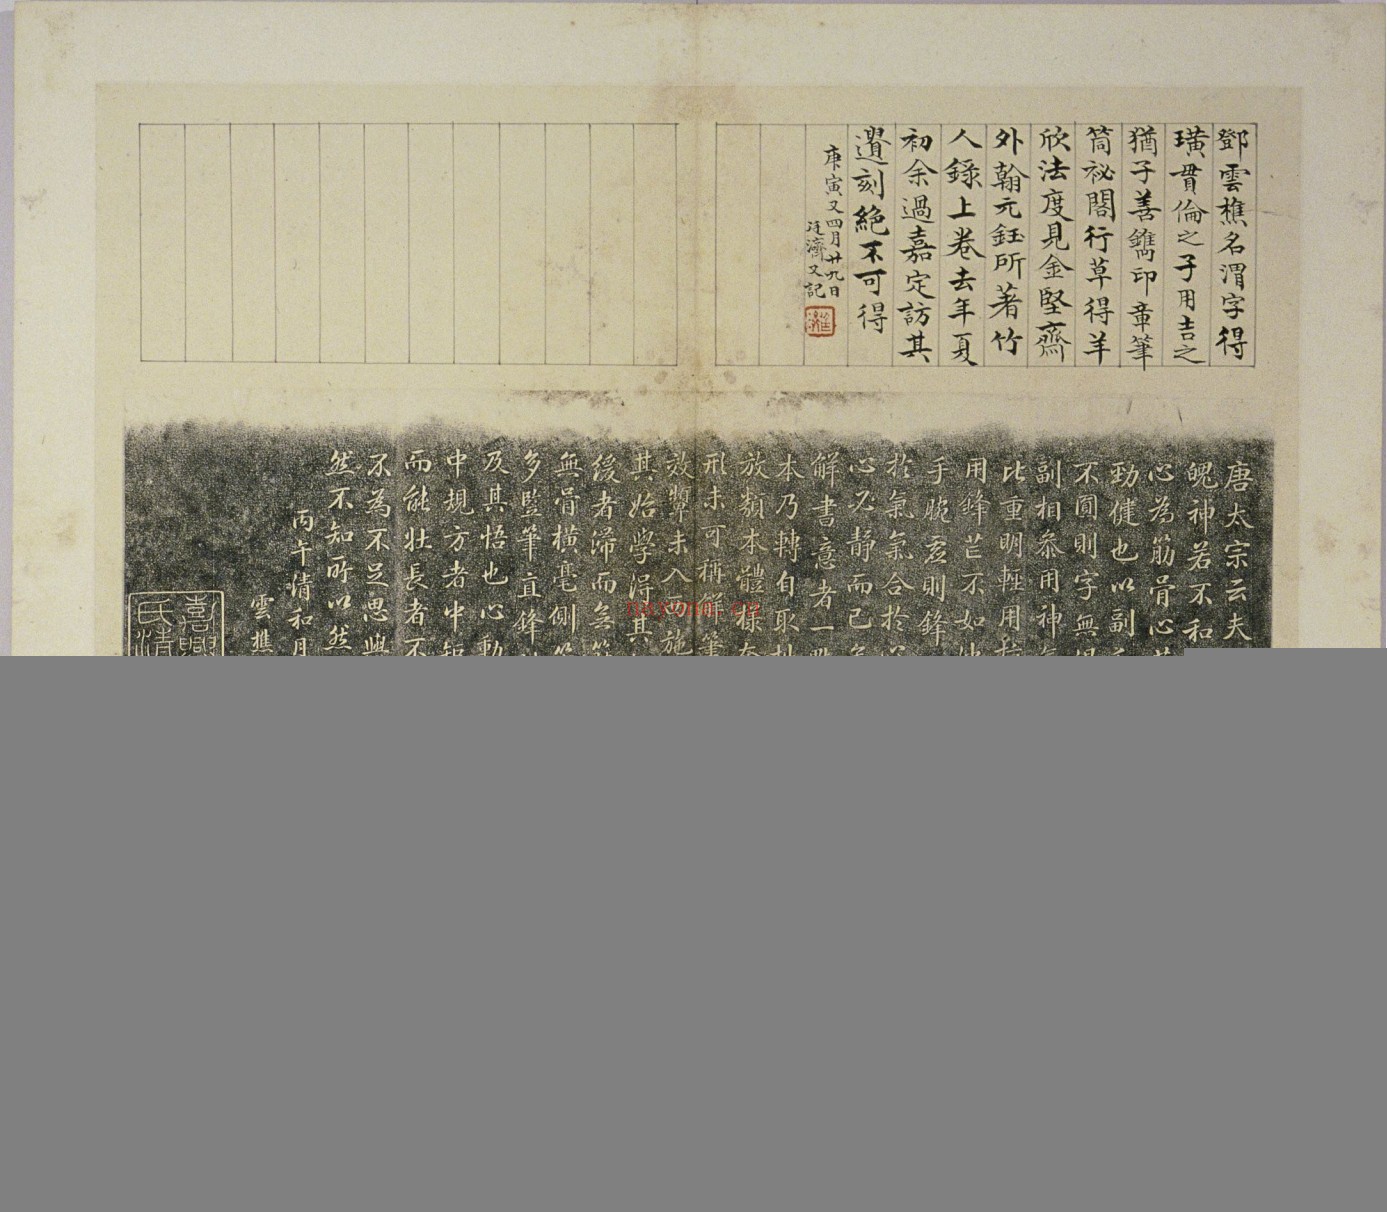 鄧雲樵名渭字得
璜貫倫之子用吉之
猶子善鐫印章筆
筒祕閣行草得羊
欣法度見金堅齋
外翰元鈺所著竹
人錄上卷去年夏
初余過嘉定訪其
遺刻絕不可得
庚寅又四月廿九日
廷濟又記
唐太宗云夫
魄神若不和
心為筋骨心
勁健也以副
不圓則字無
副相叅用神
比重明輕用
用鋒芒不如
手腕虛則鋒
於氣氣合於
心必静而已
解書意者一
本乃轉自取
放類本體樣
形未可稱解筆
效顰未入西施
其始學得其
緩者滯而無
無骨橫毫側
多豎筆直鋒
及其悟也心動
中規方者中矩
而能壯長者不
不為不足思與
然不知所以然
丙午清和月
雲樵
nayona.cn